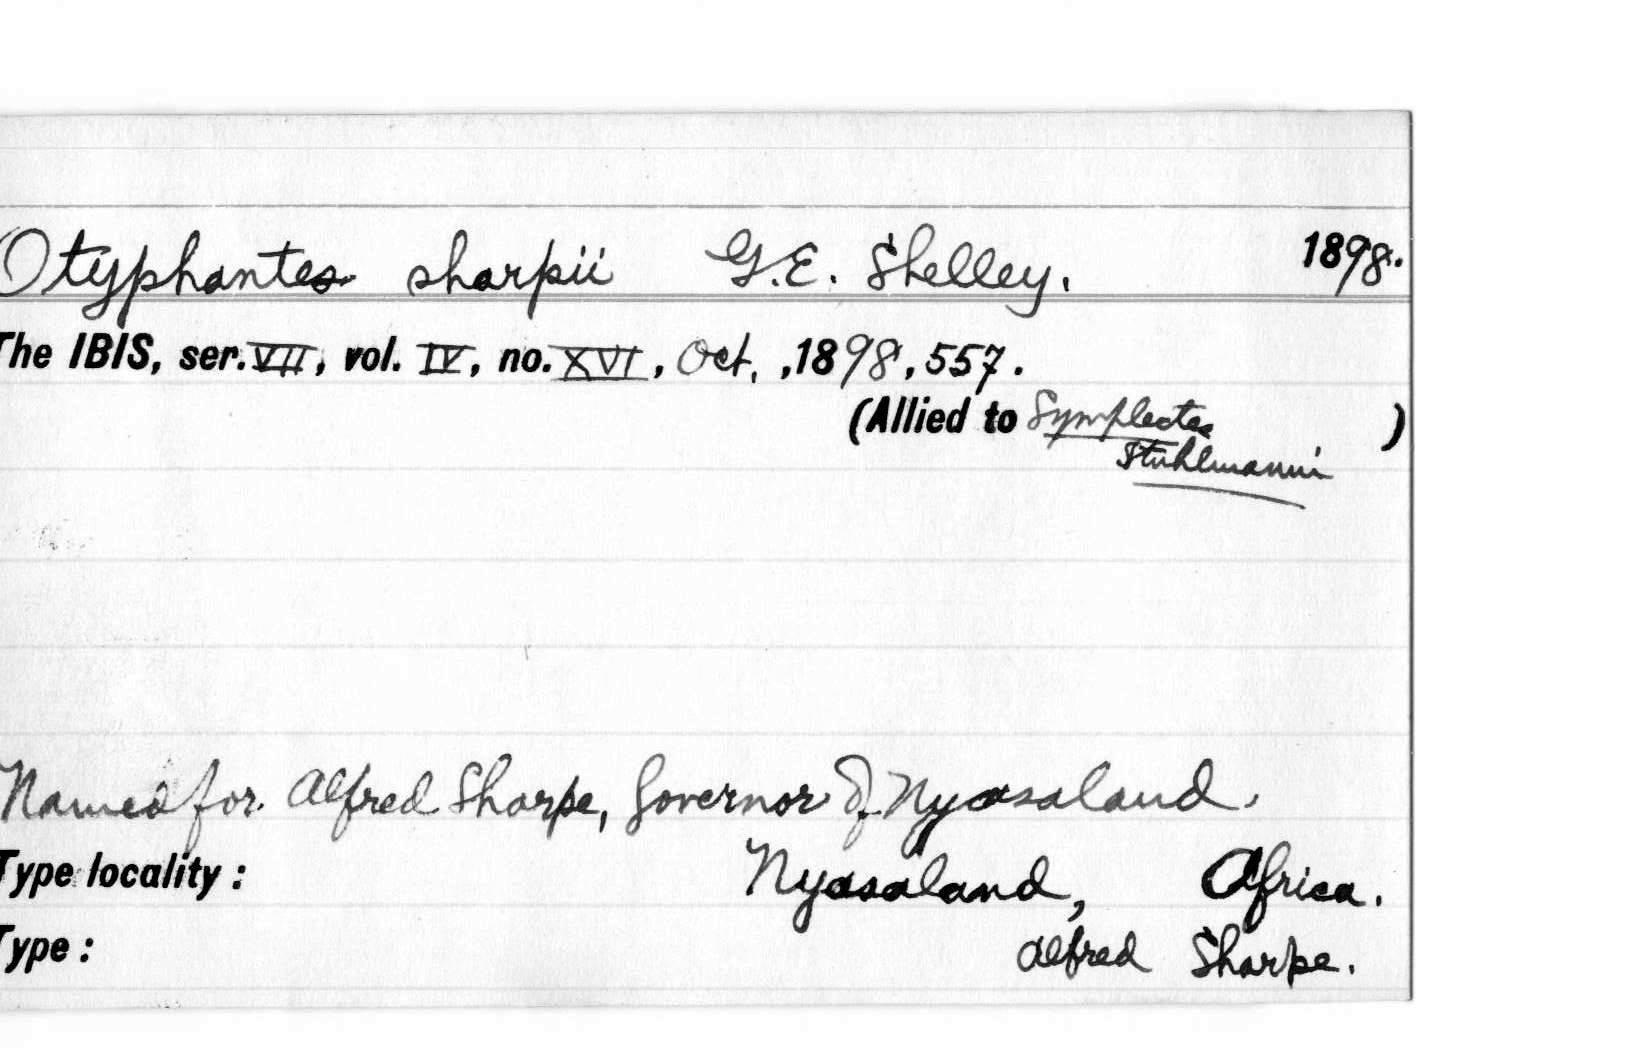 Otyphantes sharpii G.E. Shelley. 1898.
The IBIS, ser. VII, vol. IV, no. XVI, Oct. ,1898, 557.
(Allied to Symplectes )
stuhlmanni
Named for Alfred Sharpe, Governor of Nyasaland.
Type locality: Nyasaland, Africa.
Type: Alfred Sharpe.